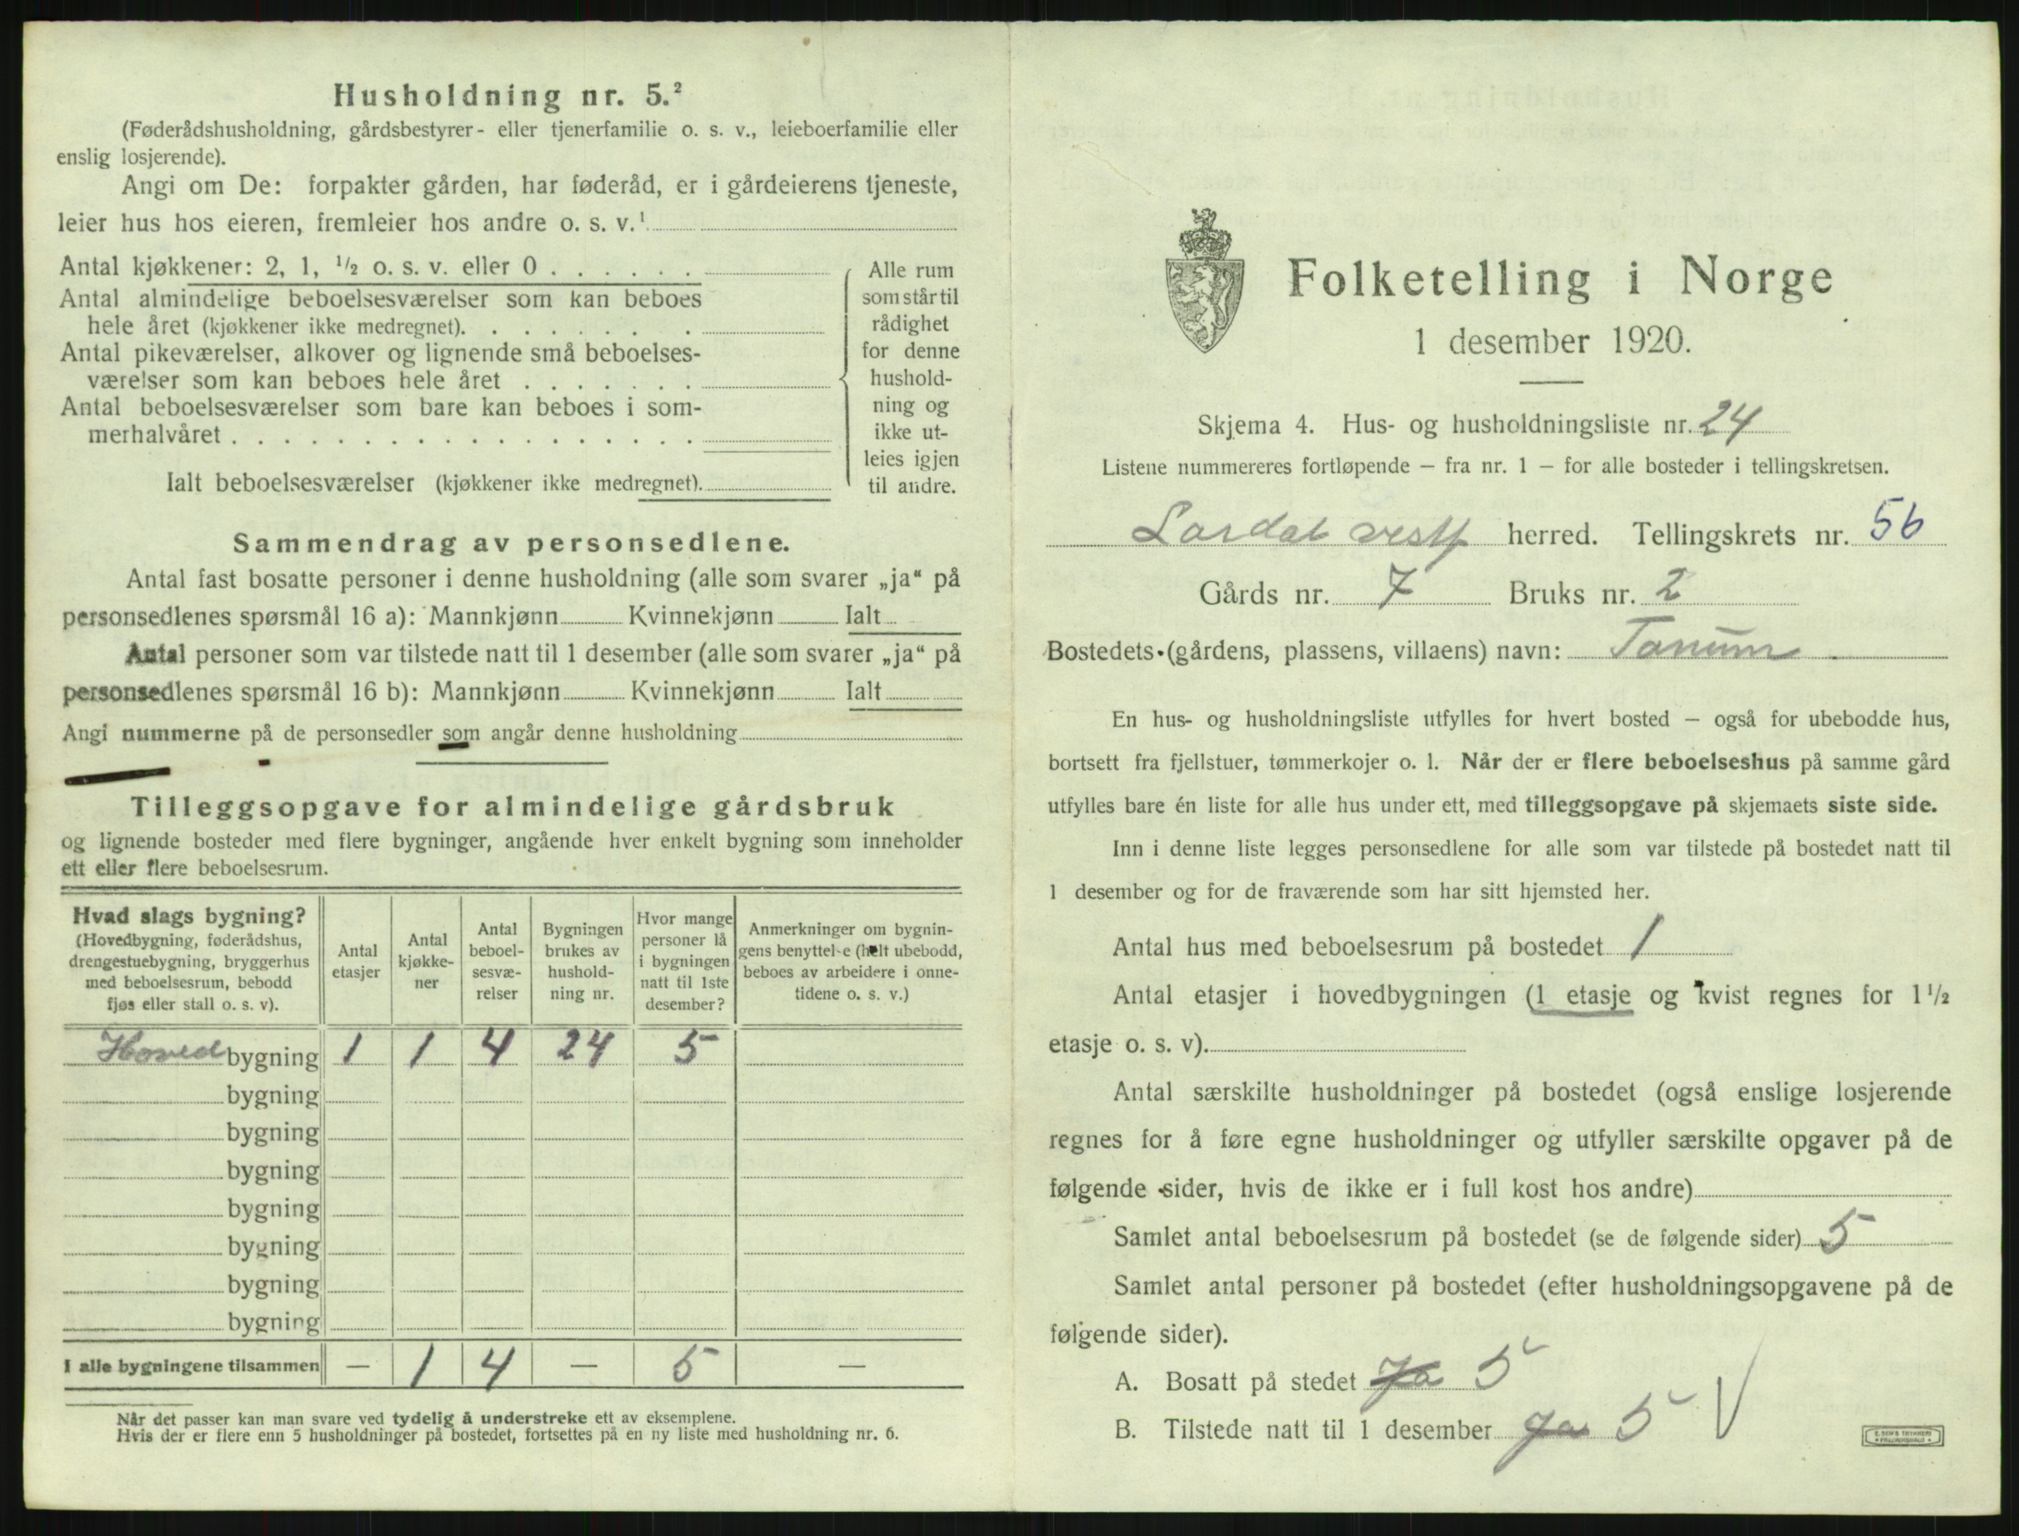 Husholdning nr. 5.²
(Føderådshusholdning, gårdsbestyrer- eller tjenerfamilie o. s. v., leieboerfamilie eller
enslig losjerende).
Angi om De: forpakter gården, har føderåd, er i gårdeierens tjeneste,
leier hus hos eieren, fremleier hos andre o. s. v.¹
Antal kjøkkener: 2, 1, ½ o. s. v. eller 0 . . . . . .
Antal almindelige beboelsesværelser som kan beboes
hele året (kjøkkener ikke medregnet). . . . . . . .
Antal pikeværelser, alkover og lignende små beboelses-
værelser som kan beboes hele året . . . . . . .
Antal beboelsesværelser som bare kan beboes i som-
merhalvåret . . . . . . . . . . . . . . . . . .
Ialt beboelsesværelser (kjøkkener ikke medregnet).
Alle rum
som står til
rådighet
for denne
hushold-
ning og
ikke ut-
leies igjen
til andre.
Sammendrag av personsedlene.
Antal fast bosatte personer i denne husholdning (alle som svarer „ja“ på
personsedlenes spørsmål 16 a): Mannkjønn Kvinnekjønn Ialt
Antal personer som var tilstede natt til 1 desember (alle som svarer „ja“ på
personsedlenes spørsmål 16 b): Mannkjønn Kvinnekjønn Ialt
Angi nummerne på de personsedler som angår denne husholdning
Tilleggsopgave for almindelige gårdsbruk
og lignende bosteder med flere bygninger, angående hver enkelt bygning som inneholder
ett eller flere beboelsesrum.
Hvad slags bygning?
(Hovedbygning, føderådshus,
drengestuebygning, bryggerhus
med beboelsesrum, bebodd
fjøs eller stall o. s. v).
Antal
etasjer
Antal
kjøkke-
ner
Antal
beboel-
sesvæ-
relser
Bygningen
brukes av
hushold-
ning nr.
Hvor mange
personer lå
i bygningen
natt til 1ste
desember?
Anmerkninger om bygnin-
gens benyttelse (helt ubebodd,
beboes av arbeidere i onne-
tidene o. s. v.)
Hoved bygning 1 1 4 24 5
bygning
bygning
bygning
bygning
bygning
bygning
bygning
I alle bygningene tilsammen — 1 4 — 5 —
Når det passer kan man svare ved tydelig å understreke ett av eksemplene.
Hvis der er flere enn 5 husholdninger på bostedet, fortsettes på en ny liste med husholdning nr. 6.
Folketelling i Norge
1 desember 1920.
Skjema 4. Hus- og husholdningsliste nr. 24
Listene nummereres fortløpende – fra nr. 1 – for alle bosteder i tellingskretsen.
Lardal vestf herred. Tellingskrets nr. 5b
Gårds nr. 7 Bruks nr. 2
Bostedets (gårdens, plassens, villaens) navn: Tanum
En hus- og husholdningsliste utfylles for hvert bosted – også for ubebodde hus,
bortsett fra fjellstuer, tømmerkojer o. l. Når der er flere beboelseshus på samme gård
utfylles bare én liste for alle hus under ett, med tilleggsopgave på skjemaets siste side.
Inn i denne liste legges personsedlene for alle som var tilstede på bostedet natt til
1 desember og for de fraværende som har sitt hjemsted her.
Antal hus med beboelsesrum på bostedet 1
Antal etasjer i hovedbygningen (1 etasje og kvist regnes for 1½
etasje o. s. v).
Antal særskilte husholdninger på bostedet (også enslige losjerende
regnes for å føre egne husholdninger og utfyller særskilte opgaver på de
følgende sider, hvis de ikke er i full kost hos andre)
Samlet antal beboelsesrum på bostedet (se de følgende sider) 5
Samlet antal personer på bostedet (efter husholdningsopgavene på de
følgende sider).
A. Bosatt på stedet Ja 5
B. Tilstede natt til 1 desember Ja 5